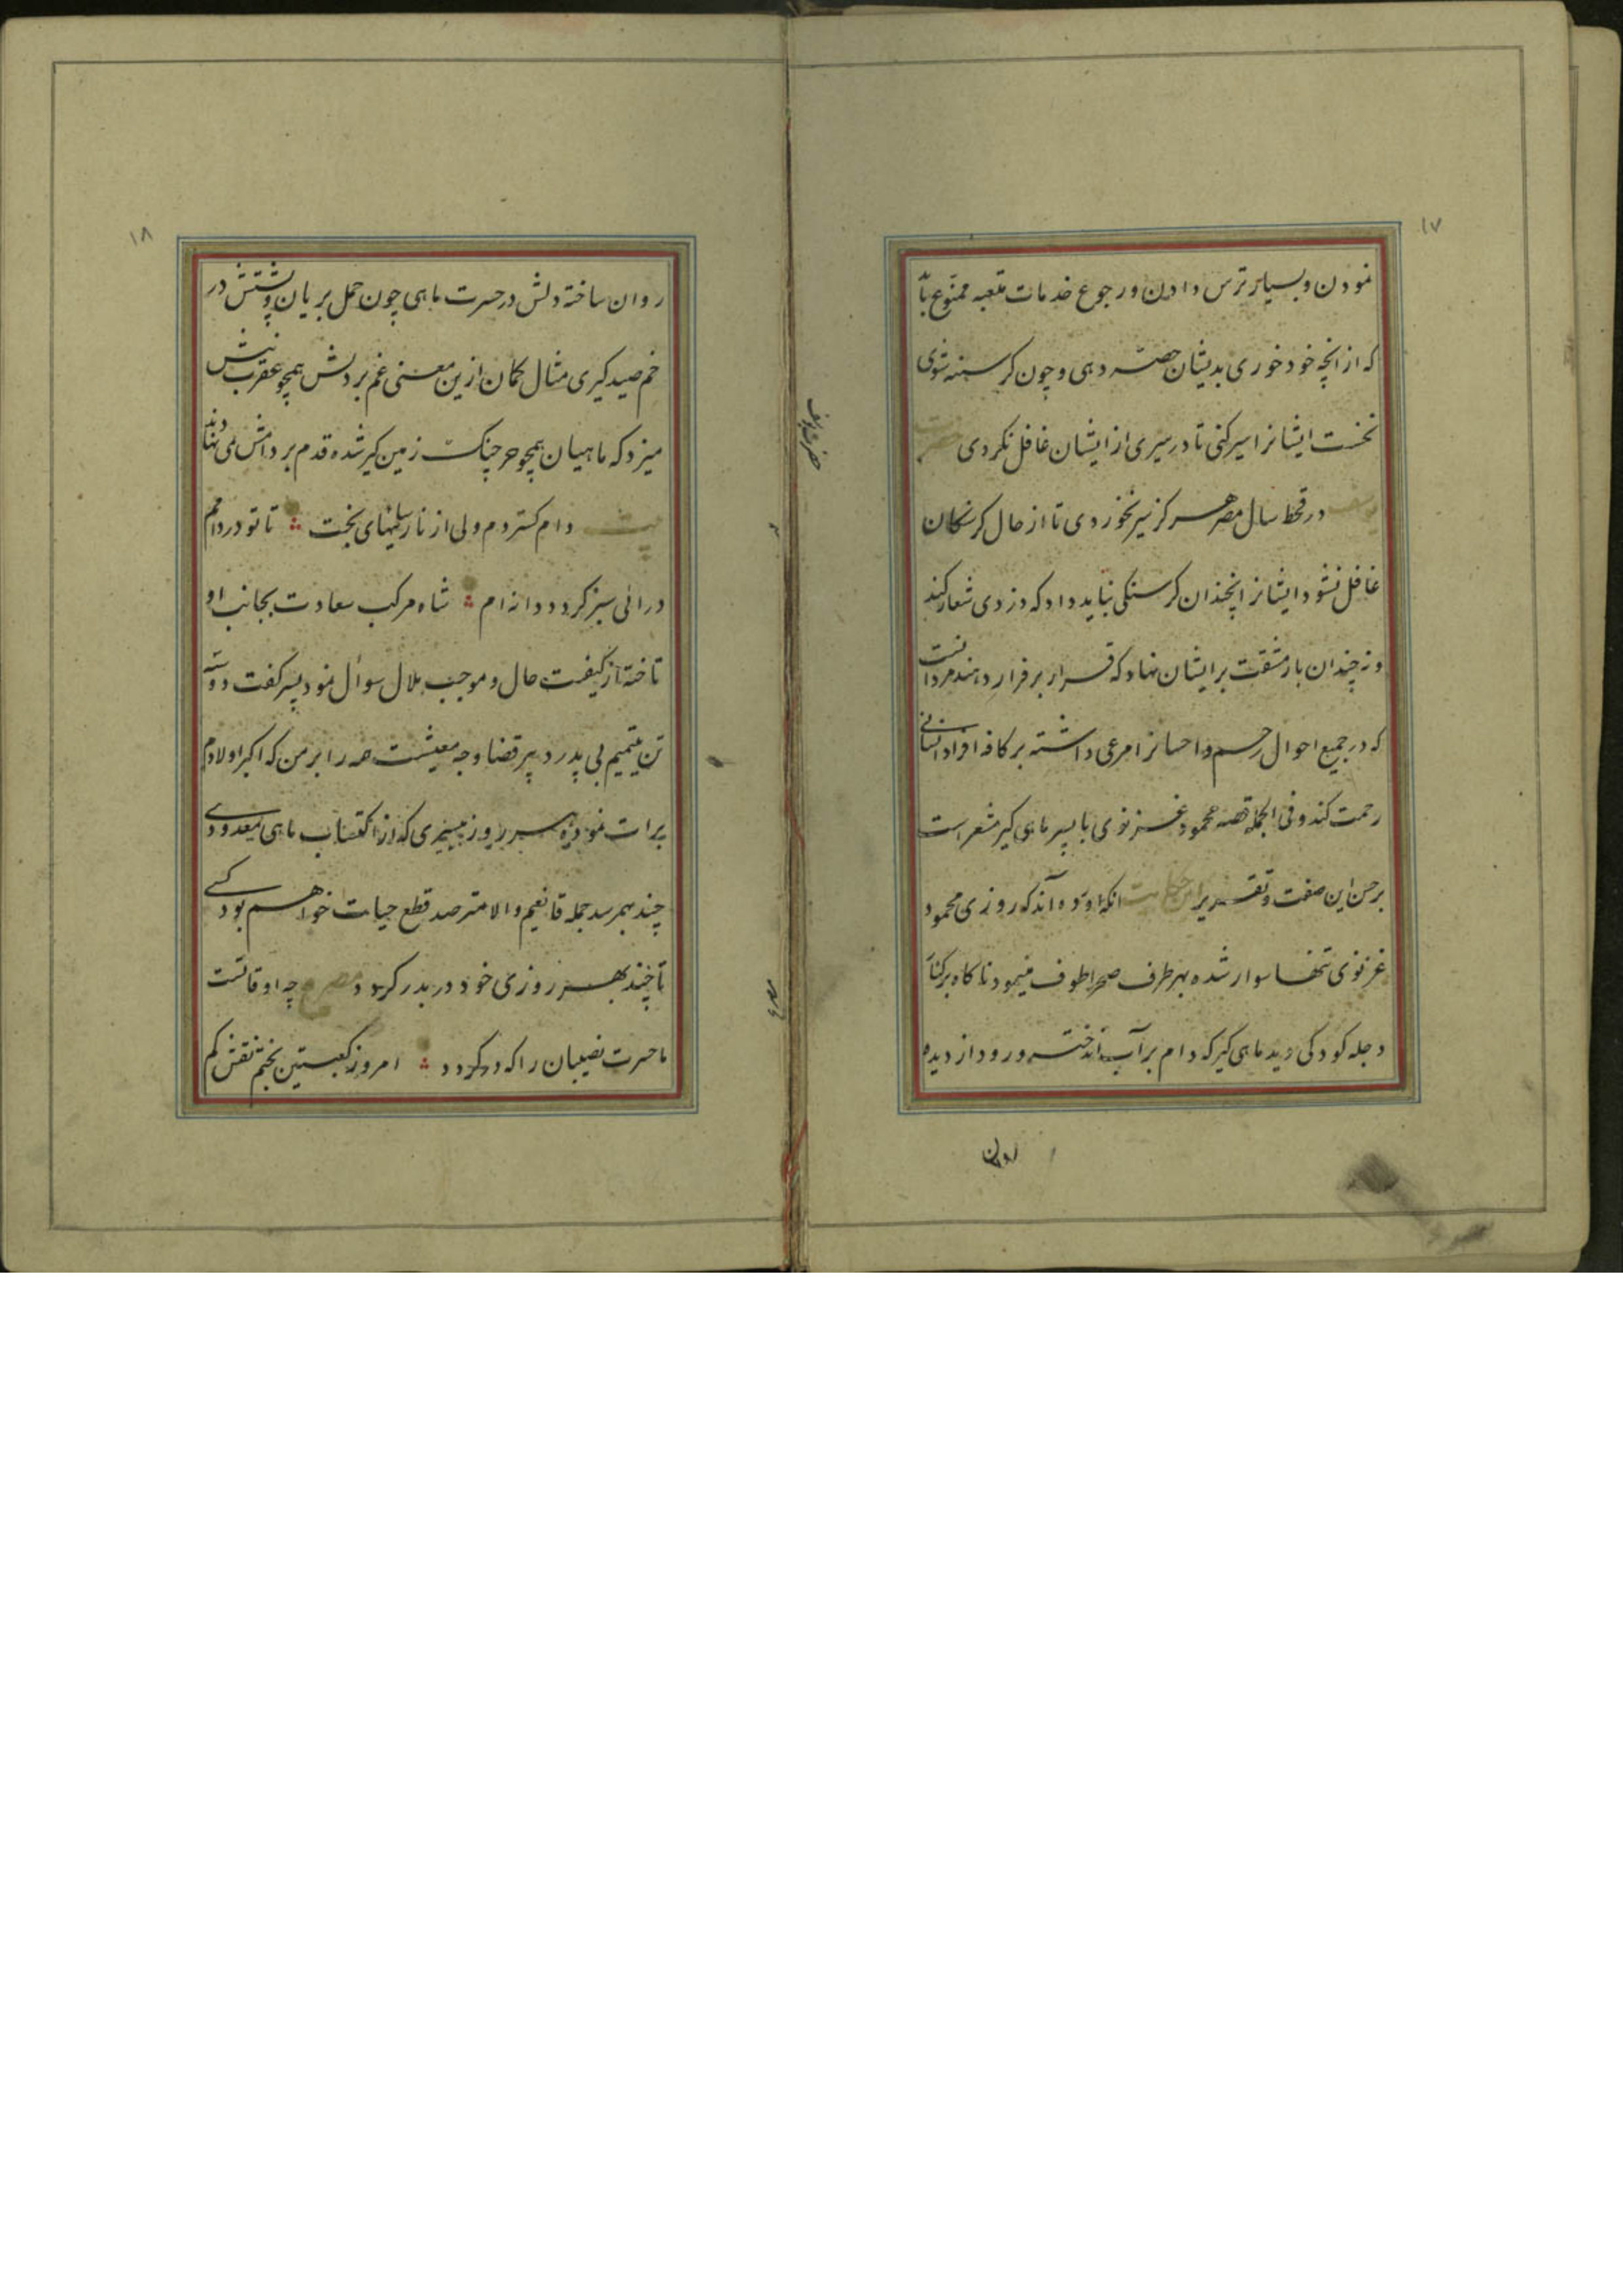 ۱۷
نمودن و بسیار ترس دادن و رجوع خدمات متعبه ممنوع با
که از آنچه خود خوری بدیشان حصه دهی و چون کرسنه شوی
نخست ایشانرا سیر کنی تا در سیری از ایشان غافل نکردی حضرت
یوسف در قحط سال مصر هرکز سیر نخوردی تا از حال کرسنکان
غافل نشود و ایشانرا آنچندان کرسنکی نباید داد که دزدی شعار کنند
و نه چندان بار مشقت بر ایشان نهاد که قرار بر فرار دهند مرد آنست
که در جمیع احوال رحم و احسانرا مرعی داشته بر کافه افراد انسانی
رحمت کند و فی الجمله قصه محمود غزنوی با پسر ماهی کیر مشعر است
بر حسن این صفت و تقریر این حکایت آنکه آورده آند که روزی محمود
غزنوی تنها سوار شده بهر طرف صحرا طوف مینمود ناکاه بر کنار
دجله کودکی دید ماهی کیر که دام بر آب انداخته و رود از دیده
روان
حضرت یوسف
۱۸
روان ساخته دلش در حسرت ماهی چون حمل بریان و پشتش در
خم صید کیری مثال کمان ازین معنی غم بر دلش همچو عقرب نیش
میزد که ماهیان همچو خرچنک زمین کیر شده قدم بر دامش می نهادند
بیت دام کستردم ولی از نارسائیهای بخت تا تو در دامم
در آئی سبز کردد دانه ام شاه مرکب سعادت بجانب او
تاخته از کیفیت حال و موجب ملال سوال نمود پسر کفت دو سه
تن یتیم بی پدرد پیر قضا وجه معیشت همه را بر من که اکبر اولادم
برات نموده هر روز بسری که از اکتساب ماهی معدودی
چند بهمرسد جمله قانعیم والا مترصد قطع حیات خواهم بود کسی
تا چند بهر روزی خود در بدر کردد مصرع چه اوقاتست
ما حسرت نصیبان را که در کردد امروز کعبتین بختم نقش کم
مصرع